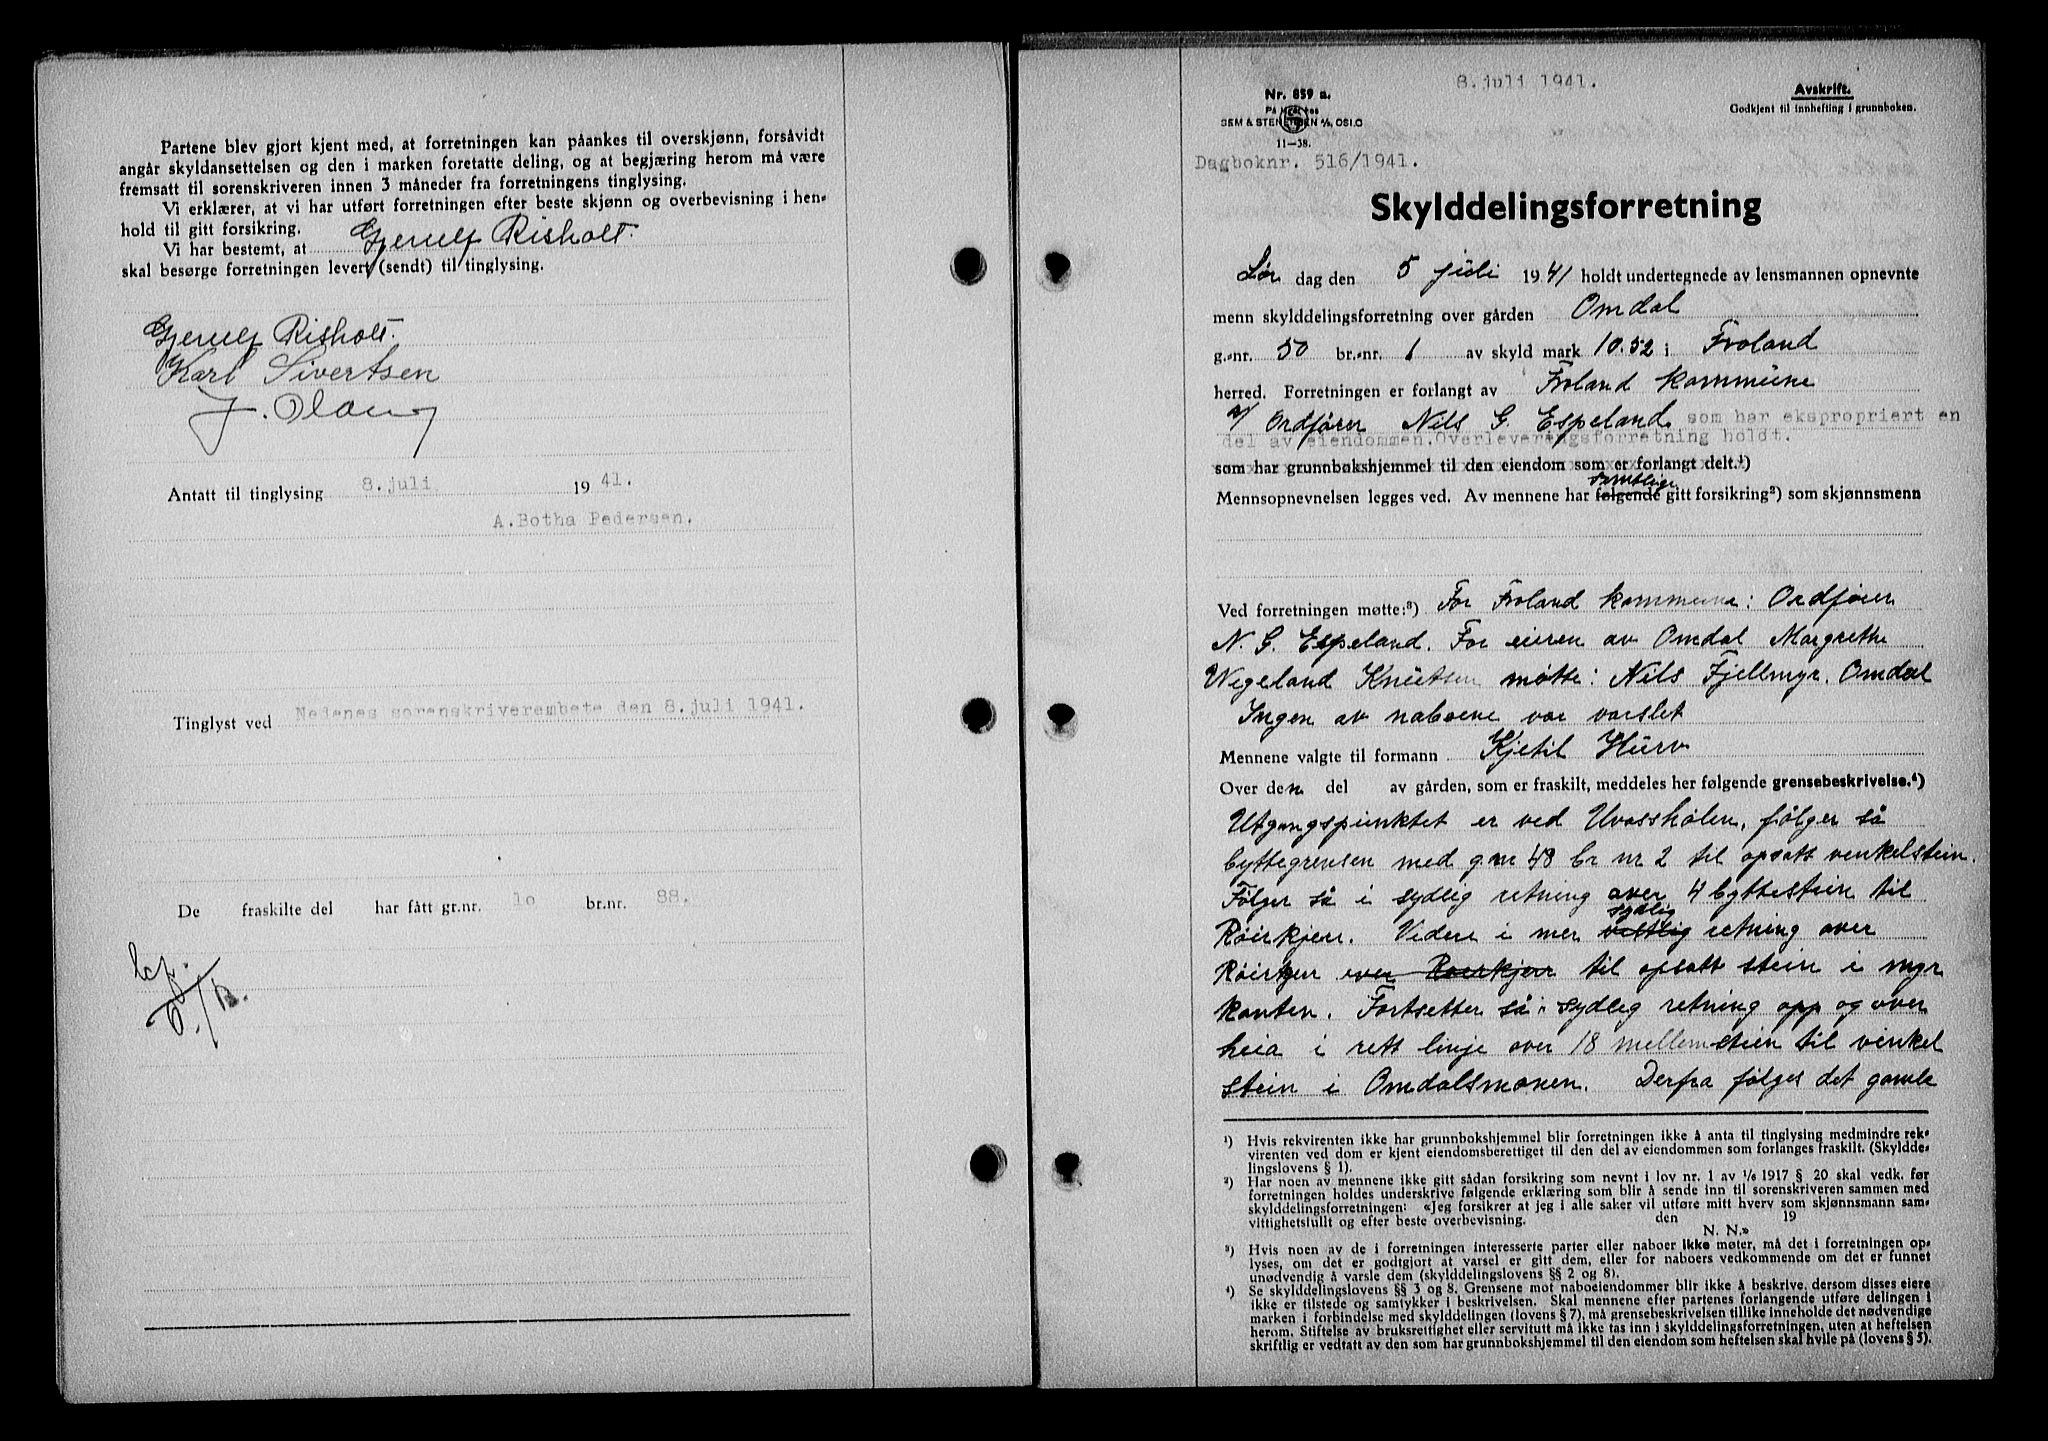 Partene blev gjort kjent med, at forretningen kan påankes til overskjønn, forsåvidt
angår skyldansettelsen og den i marken foretatte deling, og at begjæring herom må være
fremsatt til sorenskriveren innen 3 måneder fra forretningens tinglysing.
Vi erklærer, at vi har utført forretningen efter beste skjønn og overbevisning i hen-
hold til gitt forsikring.
Vi har bestemt, at Gjerulf Risholt.
skal besørge forretningen levert (sendt) til tinglysing.
Gjerulf Risholt.
Karl Sivertsen
J. Olan
Antatt til tinglysing 8.juli 1941.
A.Botha Pedersen.
Tinglyst ved Nedenes sorenskriverembete den 8.juli 1941.
De fraskilte del har fått gr.nr. 1o br.nr. 88.
Nr. 859 a.
SEM & STENERSEN A/S, OSLO
11—38.
8.juli 1941.
Avskrift.
Godkjent til innhefting i grunnboken.
Dagboknr. 516/1941.
Skylddelingsforretning
Lør dag den 5 juli 1941 holdt undertegnede av lensmannen opnevnte
menn skylddelingsforretning over gården Omdal
g.-nr. 50 br.-nr. 1 av skyld mark 10.52 i Froland
herred. Forretningen er forlangt av Froland kommune
v/ Ordfører Nils G. Espeland som har ekspropriert en
del av eiendommen.Overleveringsforretning holdt.
som har grunnbokshjemmel til den eiendom som er forlangt delt.¹)
samtlige
Mennsopnevnelsen legges ved. Av mennene har følgende gitt forsikring²) som skjønnsmenn
Ved forretningen møtte:³) For Froland kommune: Ordfører
N. G. Espeland. For eieren av Omdal Margrethe
Wegeland Knutsen møtte: Nils Fjellmyr. Omdal
Ingen av naboene var varslet
Mennene valgte til formann Kjetil Hurv
Over den del av gården, som er fraskilt, meddeles her følgende grensebeskrivelse.⁴)
Utgangspunktet er ved Uvasshølen, følger så
byttegrensen med g.nr 48 br nr 2 til opsatt venkelstein.
Følger så i sydlig retning over 4 byttestein til
sydlig
Røirkjerr. Videre i mer vestlig retning over
Røirkjerr over Roerkjerr til opsatt stein i myr
kanten. Fortsetter så i sydleg retning opp og over
heia i rett linje over 18 mellemstein til vinkel
stein i Omdalsmonen. Derfra følges det gamle
¹) Hvis rekvirenten ikke har grunnbokshjemmel blir forretningen ikke å anta til tinglysing medmindre rek-
virenten ved dom er kjent eiendomsberettiget til den del av eiendommen som forlanges fraskilt. (Skyldde-
lingslovens § 1).
²) Har noen av mennene ikke gitt sådan forsikring som nevnt i lov nr. 1 av 1/6 1917 § 20 skal vedk. før
forretningen holdes underskrive følgende erklæring som blir å sende inn til sorenskriveren sammen med
skylddelingsforretningen: «Jeg forsikrer at jeg i alle saker vil utføre mitt hverv som skjønnsmann sam-
vittighetsfullt og efter beste overbevisning. den 19
N. N.»
³) Hvis noen av de i forretningen interesserte parter eller naboer ikke møter, må det i forretningen op-
lyses, om det er godtgjort at varsel er gitt dem, eller for naboers vedkommende om det er funnet
unødvendig å varsle dem (skylddelingslovens §§ 2 og 8).
⁴) Se skylddelingslovens §§ 3 og 8. Grensene mot naboeiendommer blir ikke å beskrive, dersom disses eiere
ikke er tilstede og samtykker i beskrivelsen. Skal mennene efter partenes forlangende utføre delingen i
marken i forbindelse med skylddelingen (lovens § 7), må grensebeskrivelsen tillike inneholde det nødvendige
herom. Stiftelse av bruksrettighet eller servitutt må ikke tas inn i skylddelingsforretningen, uten at heftelsen
skriftlig er vedtatt av den som har grunnbokshjemmel til den eiendom som heftelsen skal hvile på (lovens § 5).